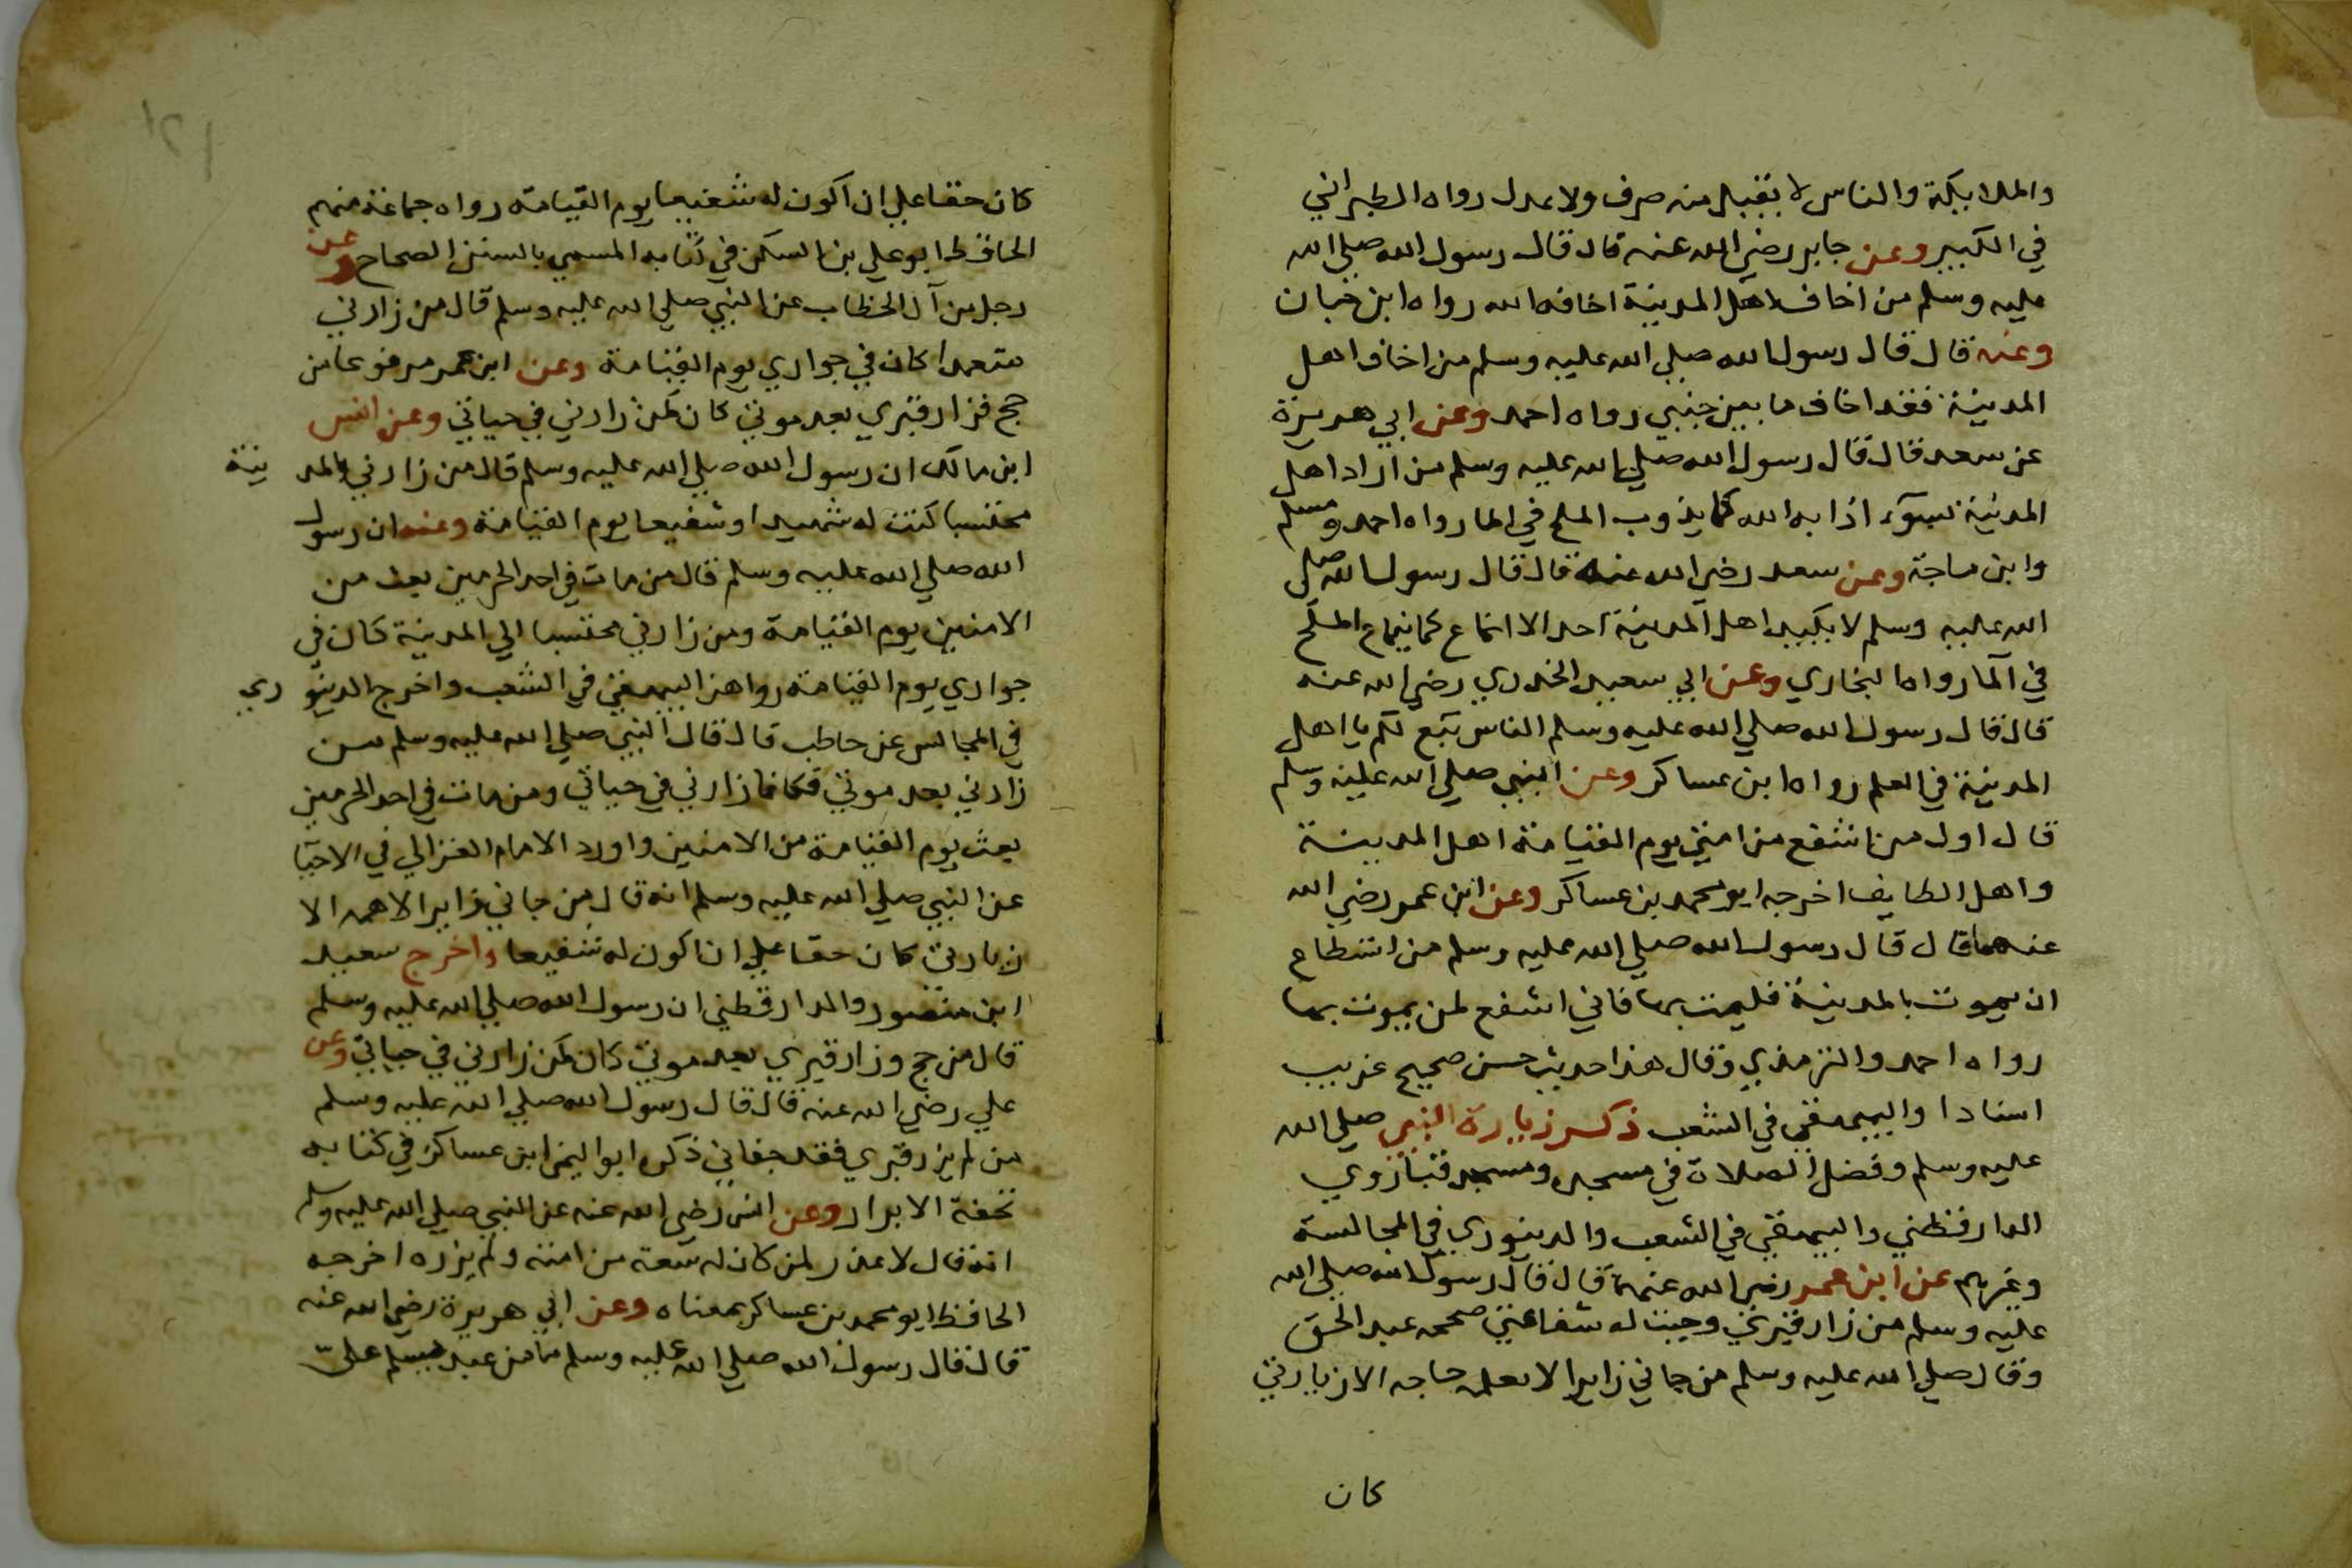 والملايكة والناس لا يقبل منه صرف ولا عدل رواه الطبراني
في الكبير وعن جابر رضي الله عنه قال قال رسول الله صلي الله
عليه وسلم من اخاف اهل المدينة اخافه الله رواه ابن حبان
وعنه قال قال رسول الله صلي الله عليه وسلم من اخاف اهل
المدينة فقد اخاف ما بين جنبي رواه احمد وعن ابي هريرة
عن سعد قال قال رسول الله صلي الله عليه وسلم من اراد اهل
المدينة بسوء اذابه الله كما يذوب الملح في الما رواه احمد ومسلم
وابن ماجة وعن سعد رضي الله عنه قال قال رسول الله صلي
الله عليه وسلم لا يكيد اهل المدينة احد الا انماع كما ينماع الملح
في الما رواه البخاري وعن ابي سعيد الخدري رضي الله عنه
قال قال رسول الله صلي الله عليه وسلم الناس تبع لكم يا اهل
المدينة في العلم رواه ابن عساكر وعن النبي صلي الله عليه وسلم
قال اول من اشفع من امتي يوم القيامة اهل المدينة
واهل الطايف اخرجه ابو محمد بن عساكر وعن ابن عمر رضي الله
عنهما قال قال رسول الله صلي الله عليه وسلم من استطاع
ان يموت بالمدينة فليمت بها فاني اشفع لمن يموت بها
رواه احمد والترمذي وقال هذا حديث حسن صحيح غريب
اسنادا والبيهقي في الشعب ذكر زيارة النبي صلي الله
عليه وسلم وفضل الصلاة في مسجده ومسجد قبا روي
الدارقطني والبيهقي في الشعب والدينوري في المجالسة
وغيرهم عن ابن عمر رضي الله عنهما قال قال رسول الله صلي الله
عليه وسلم من زار قبري وجبت له شفاعتي صححه عبد الحق
وقال صلي الله عليه وسلم من جاني زايرا لا تعلمه حاجه الا زيارتي
كان
كان حقا علي ان اكون له شفيعا يوم القيامة رواه جماعة منهم
الحافظ ابو علي بن السكن في كتابه المسمي بالسنن الصحاح وعن
رجل من آل الخطاب عن النبي صلي الله عليه وسلم قال من زارني
متعمدا كان في جواري يوم القيامة وعن ابن عمر مرفوعا من
حج فزار قبري بعد موتي كان كمن زارني في حياتي وعن انس
ابن مالك ان رسول الله صلي الله عليه وسلم قال من زارني بالمدينة
محتسبا كنت له شهيدا وشفيعا يوم القيامة وعنه ان رسول
الله صلي الله عليه وسلم قال من مات في احد الحرمين بعث من
الامنين يوم القيامة ومن زارني محتسبا الي المدينة كان في
جواري يوم القيامة رواهن البيهقي في الشعب واخرج الدينوري
في المجالس عن حاطب قال قال النبي صلي الله عليه وسلم من
زارني بعد موتي فكانما زارني في حياتي ومن مات في احد الحرمين
بعث يوم القيامة من الامنين واورد الامام الغزالي في الاحيا
عن النبي صلي الله عليه وسلم انه قال من جاني زايرا لاهمه الا
زيارتي كان حقا علي ان اكون له شفيعا واخرج سعيد
ابن منصور والدارقطني ان رسول الله صلي الله عليه وسلم
قال من حج وزار قبري بعد موتي كان كمن زارني في حياتي وعن
علي رضي الله عنه قال قال رسول الله صلي الله عليه وسلم
من لم يزر قبري فقد جفاني ذكره ابو اليمن ابن عساكر في كتابه
تحفة الابرار وعن انس رضي الله عنه عن النبي صلي الله عليه وسلم
انه قال لا عذر لمن كان له سعة من امته ولم يزره اخرجه
الحافظ ابو محمد بن عساكر بمعناه وعن ابي هريرة رضي الله عنه
قال قال رسول الله صلي الله عليه وسلم ما من عبد يسلم علي